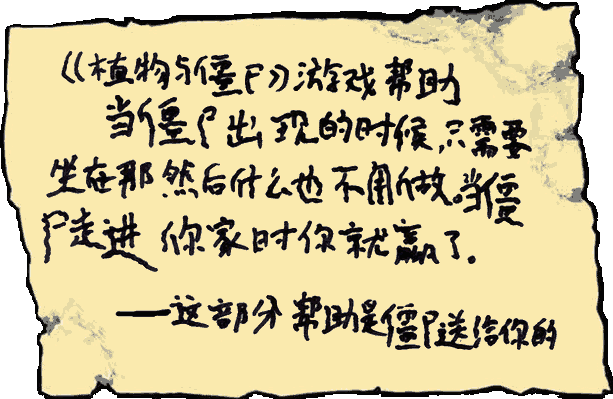 《植物与僵尸》游戏帮助
当僵尸出现的时候,只需要
坐在那然后什么也不用做。当僵
尸走进你家时你就赢了。
——这部分帮助是僵尸送给你的